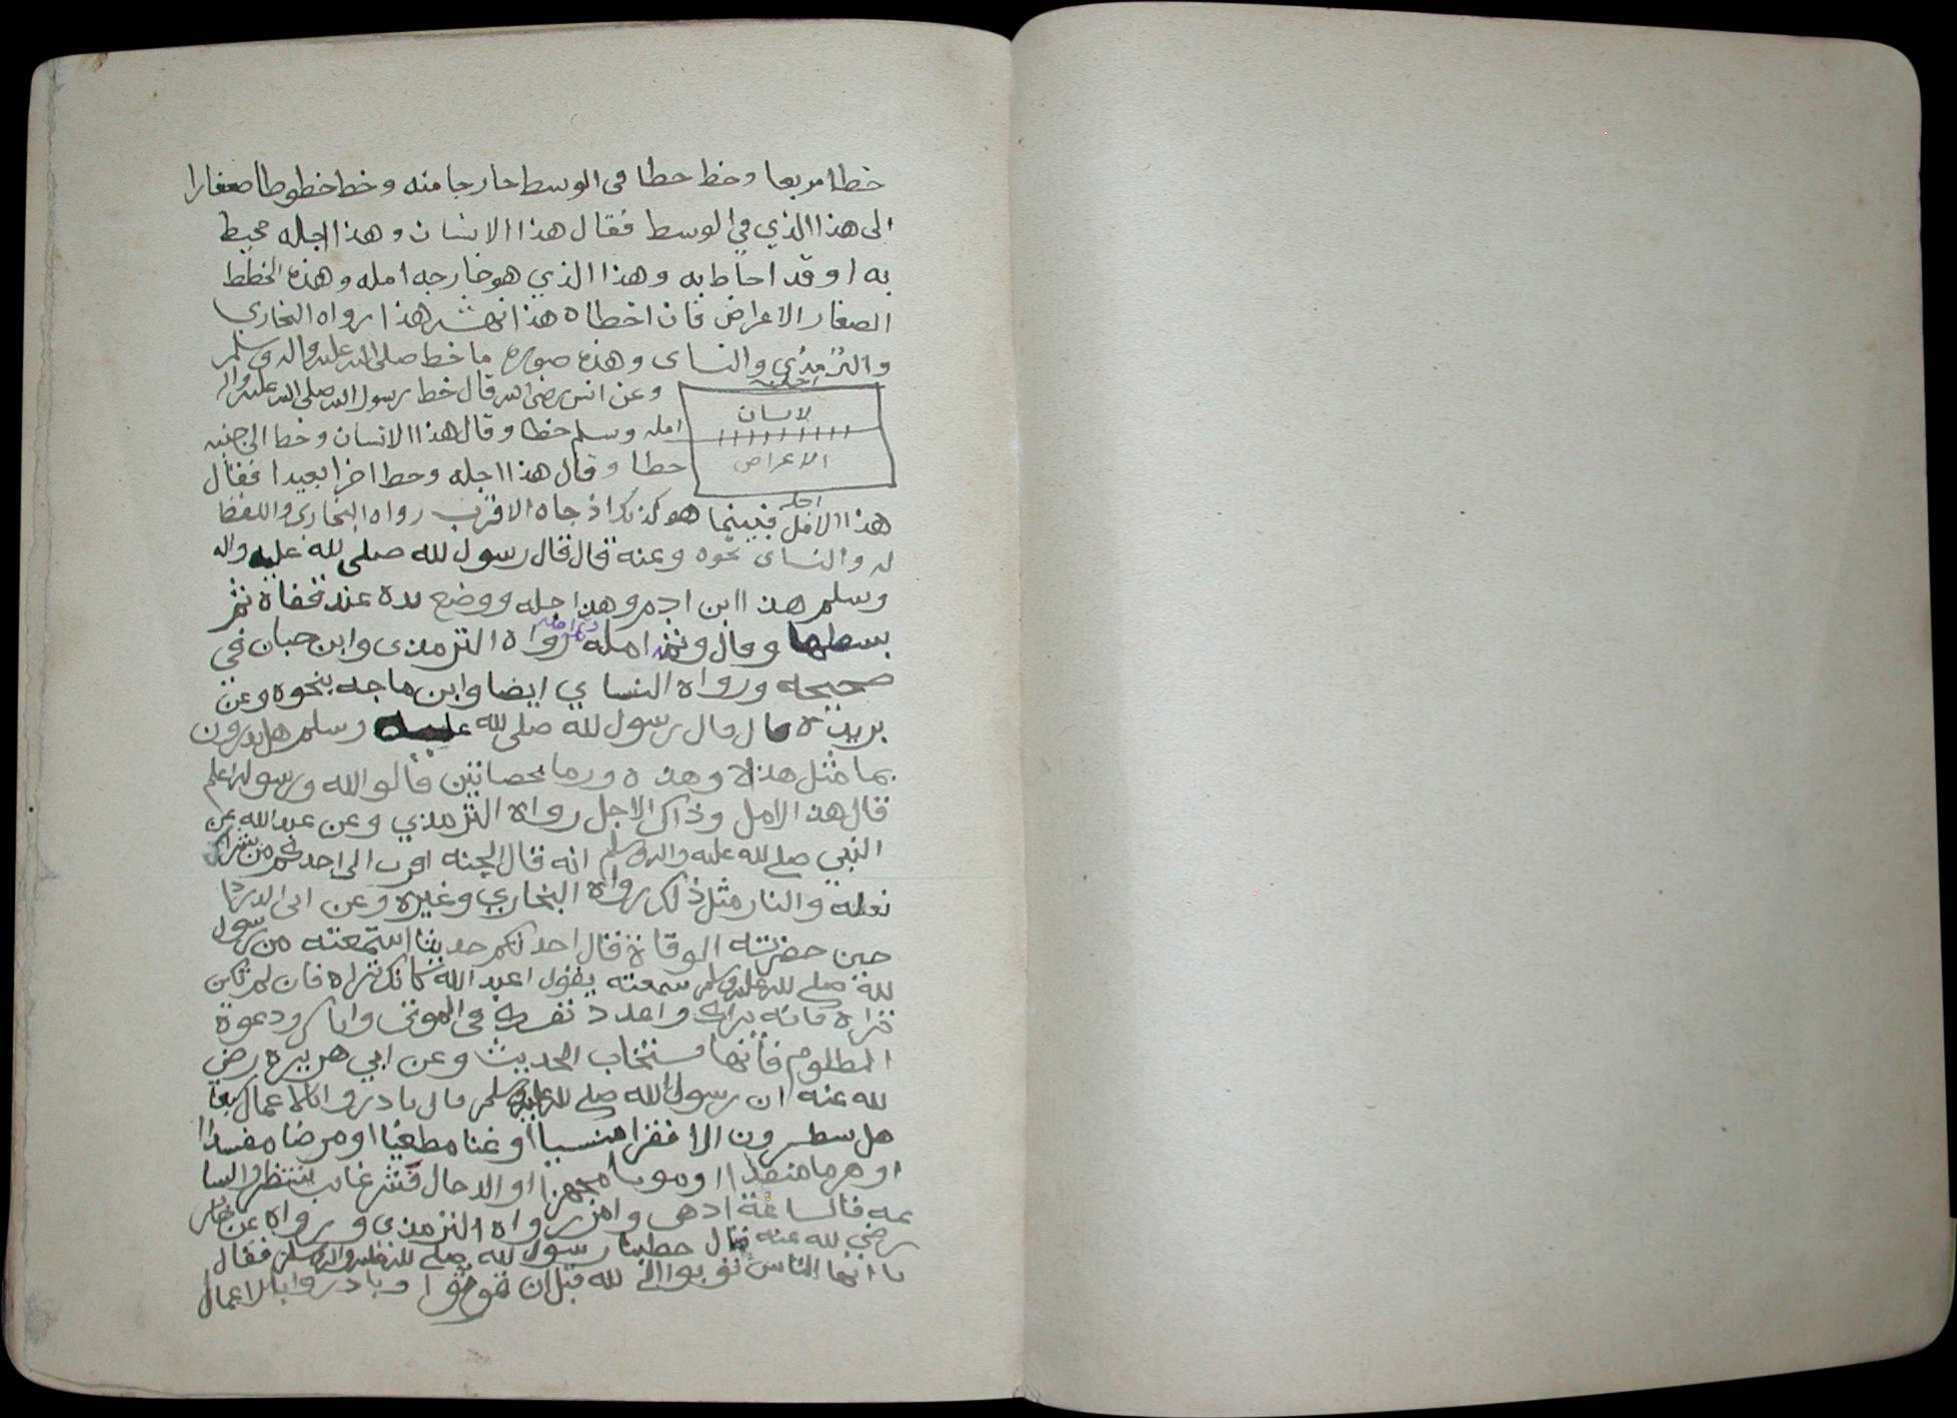 خطا مربعا وخط خطا في الوسط خارجا منه وخط خطوطا صغارا
الى هذا الذي في الوسط فقال هذا الانسان وهذا اجله محيط
به او قد احاط به وهذا الذي هو خارجه امله وهذه الخطط
الصغار الاعراض فان اخطاه هذا نهشه هذا رواه البخاري
والترمذي والنساى وهذه صوره ما خط صلى الله عليه واله وسلم
اجله
وعن انس رضى الله قال خط رسول الله صلى الله عليه واله
الانسان
امله وسلم خطا وقال هذا الانسان وخط الى جنبه
الاعراض
خطا وقال هذا اجله وخط اخر بعيدا فقال
اجله
هذا الامل فبينما هو كذلك اذ جاه الاقرب رواه البخارى واللفظ
له والنساى نحوه وعنه قال قال رسول لله صلى لله عليه واله
وسلم هذا ابن ادم وهذا اجله ووضع يده عند قفاة ثم
بسطها وقال وثم امله رواه الترمذى وابن حبان في
صحيحه ورواه النساي ايضا وابن ماجه بنحوه وعن
بريدة قال قال رسول لله صلى لله عليه وسلم هل تدرون
بما مثل هذه وهذه ورما بحصاتين قالو الله ورسوله اعلم
قال هذ الامل وذاك الاجل رواه الترمذي وعن عبد الله عن
النبي صلى لله عليه واله وسلم انه قال الجنه اقرب الى احدكم من شراك
نعله والنار مثل ذلك رواه البخاري وغيره وعن ابى الدردا
حين حضرته الوفاة قال احدثكم حديثا سمعته من رسول
لله صلى لله عليه وسلم سمعته يقول اعبد الله كانك تراه فان لم تكن
تراه فانه يراك واعدد نفسك فى الموتى واياك ودعوة
المطلوم فانها تستجاب الحديث وعن ابي هريره رضي
لله عنه ان رسول الله صلى لله عليه وسلم قال بادروا بالاعمال سبعا
هل تنظرون الا فقرا منسيا او غنا مطغيا او مرضا مفسدا
او هرما مفندا او موتا مجهزا او الدجال فشر غايب ينتظر والسا
عه فالساعة ادهى وامر رواه الترمذى ورواه عن جابر
رضي لله عنه قال خطبنا رسول لله صلى لله عليه واله وسلم فقال
يا ايها الناس توبوا الى لله قبل ان تموتوا وبادروا بالاعمال